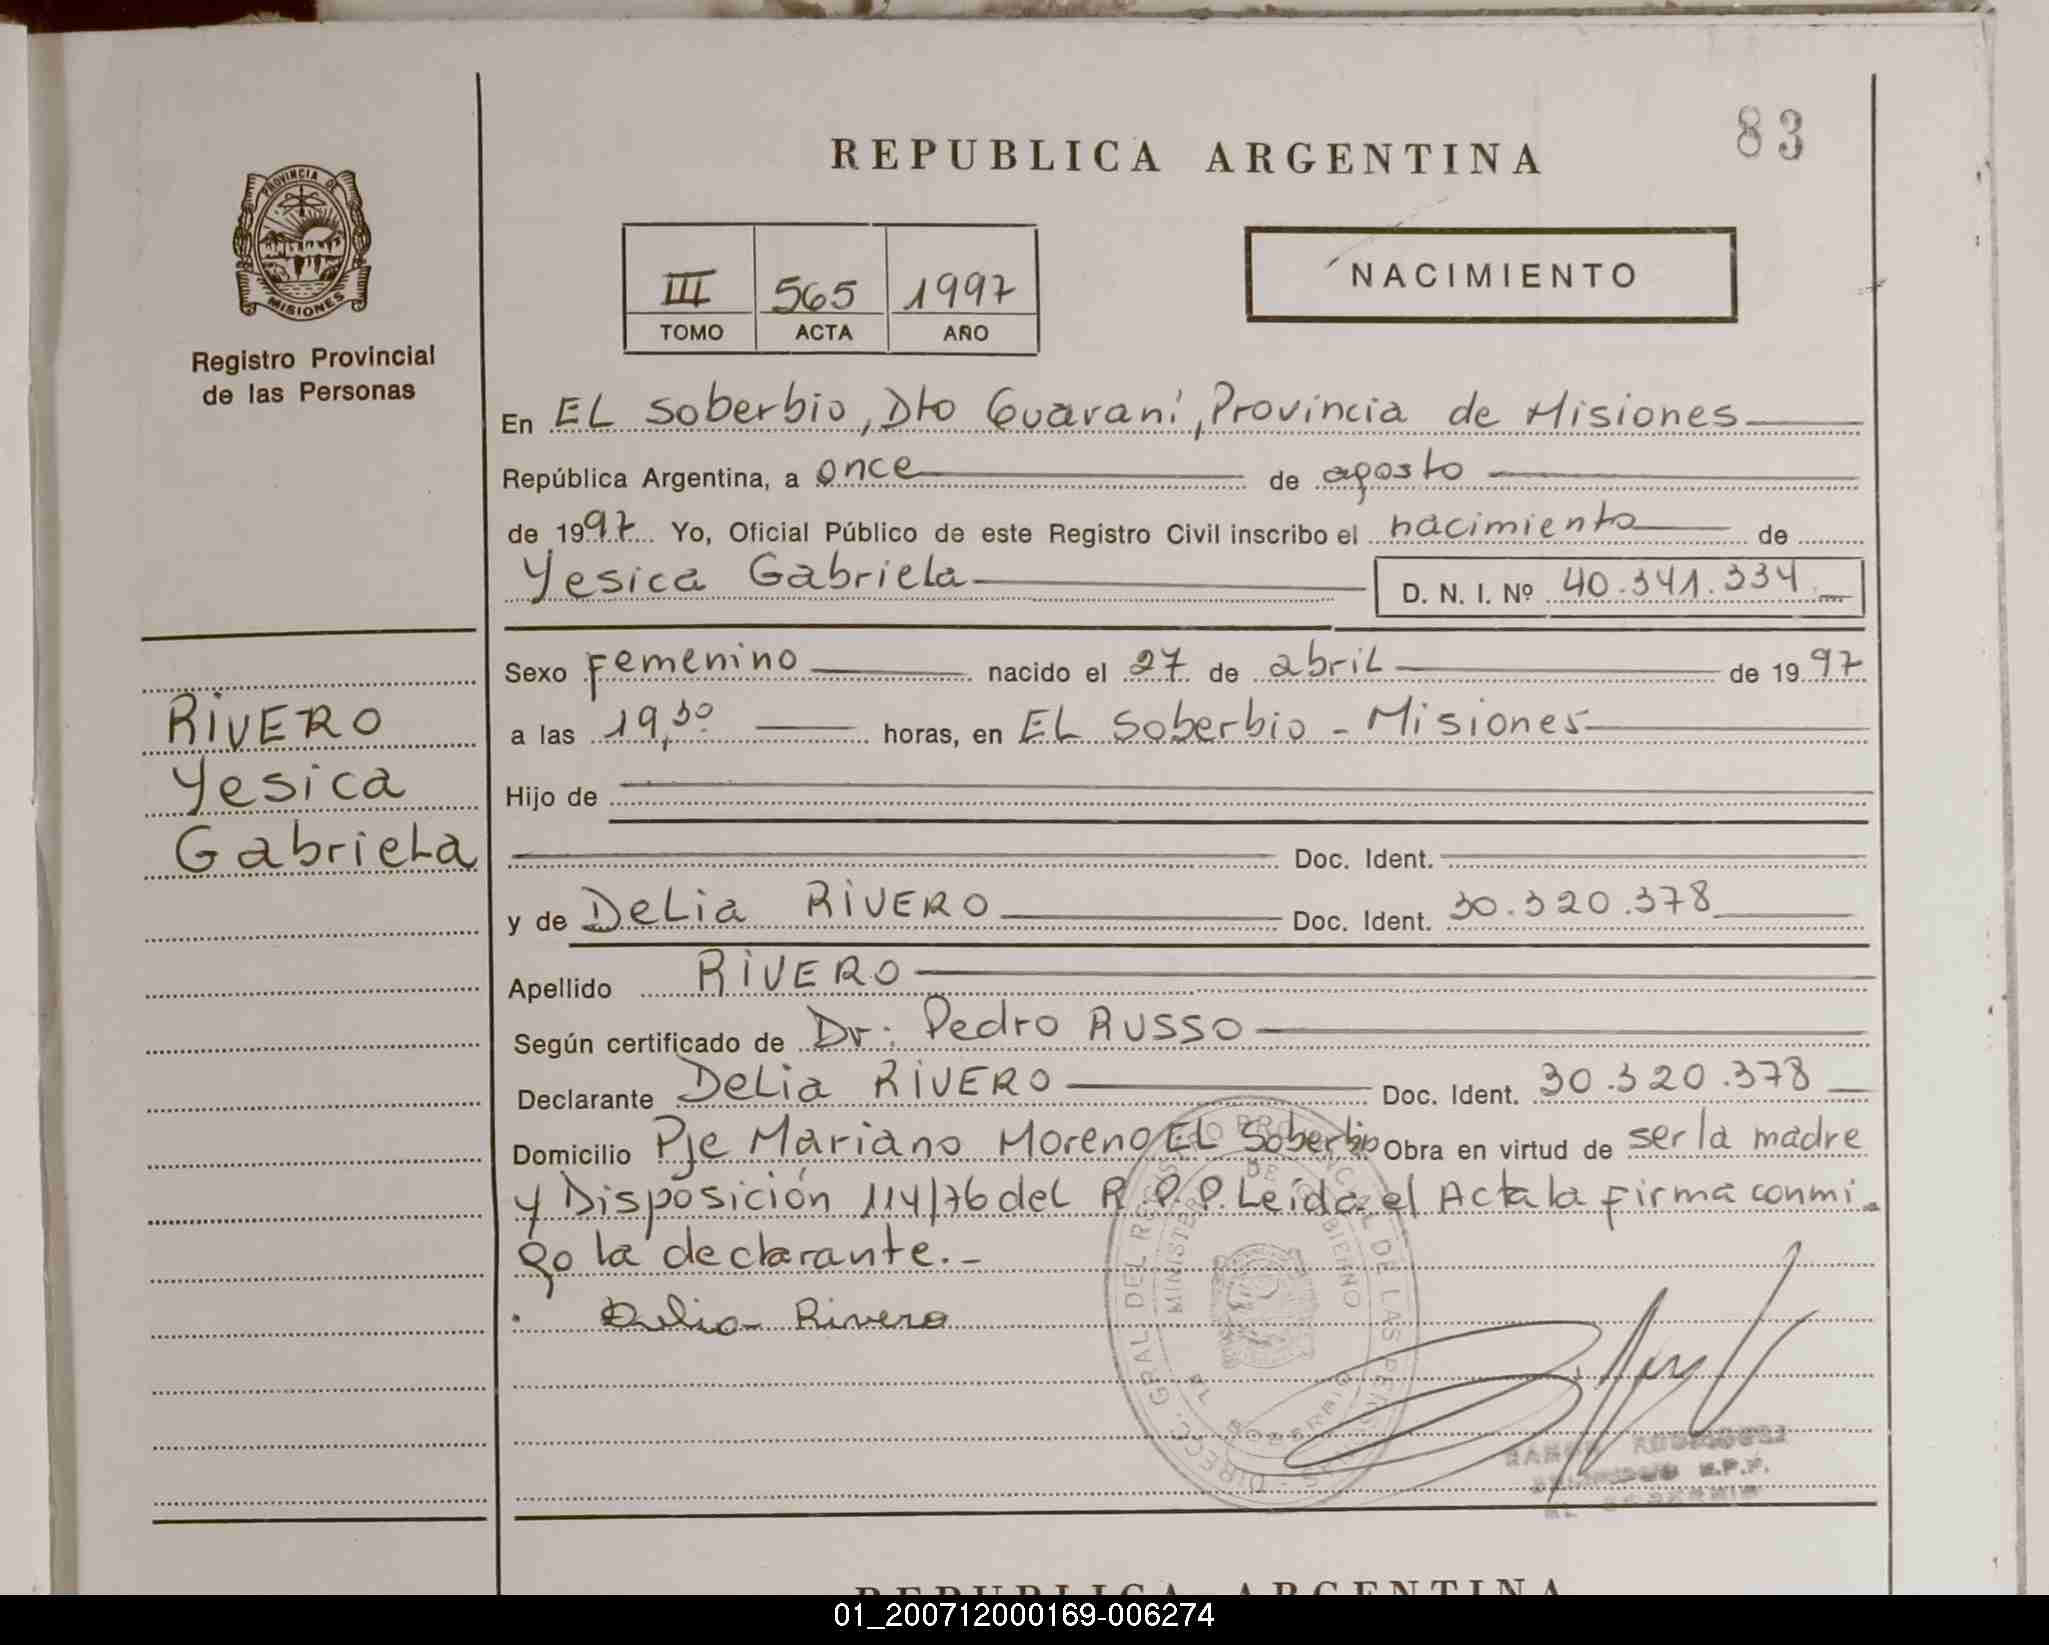 83
REPUBLICA ARGENTINA
PROVINCIA DE
MISIONES
Registro Provincial
de las Personas
III 565 1997
TOMO ACTA AÑO
NACIMIENTO
En EL Soberbio, Dto Guaraní, Provincia de Misiones
República Argentina, a once de agosto
de 1997 Yo, Oficial Público de este Registro Civil inscribo el nacimiento de
Yesica Gabriela D. N. I. Nº 40.341.334
Sexo Femenino nacido el 27 de abril de 1997
RIVERO
a las 19,30 horas, en EL Soberbio - Misiones
Yesica
Hijo de
Gabriela
Doc. Ident.
y de Delia RIVERO Doc. Ident. 30.320.378
Apellido RIVERO
Según certificado de Dr: Pedro RUSSO
Declarante Delia RIVERO Doc. Ident. 30.320.378
Domicilio Pje Mariano Moreno EL Soberbio Obra en virtud de ser la madre
y Disposición 114/76 del R.P.P. Leída el Acta la firma conmi-
go la declarante.-
Delia Rivero
DIRECC. GRAL. DEL REGISTRO PROVINCIAL DE LAS PERSONAS
MINISTERIO DE GOBIERNO
EL SOBERBIO
RAMON RODRIGUEZ
R.P.P.
EL SOBERBIO
REPUBLICA ARGENTINA
01_200712000169-006274